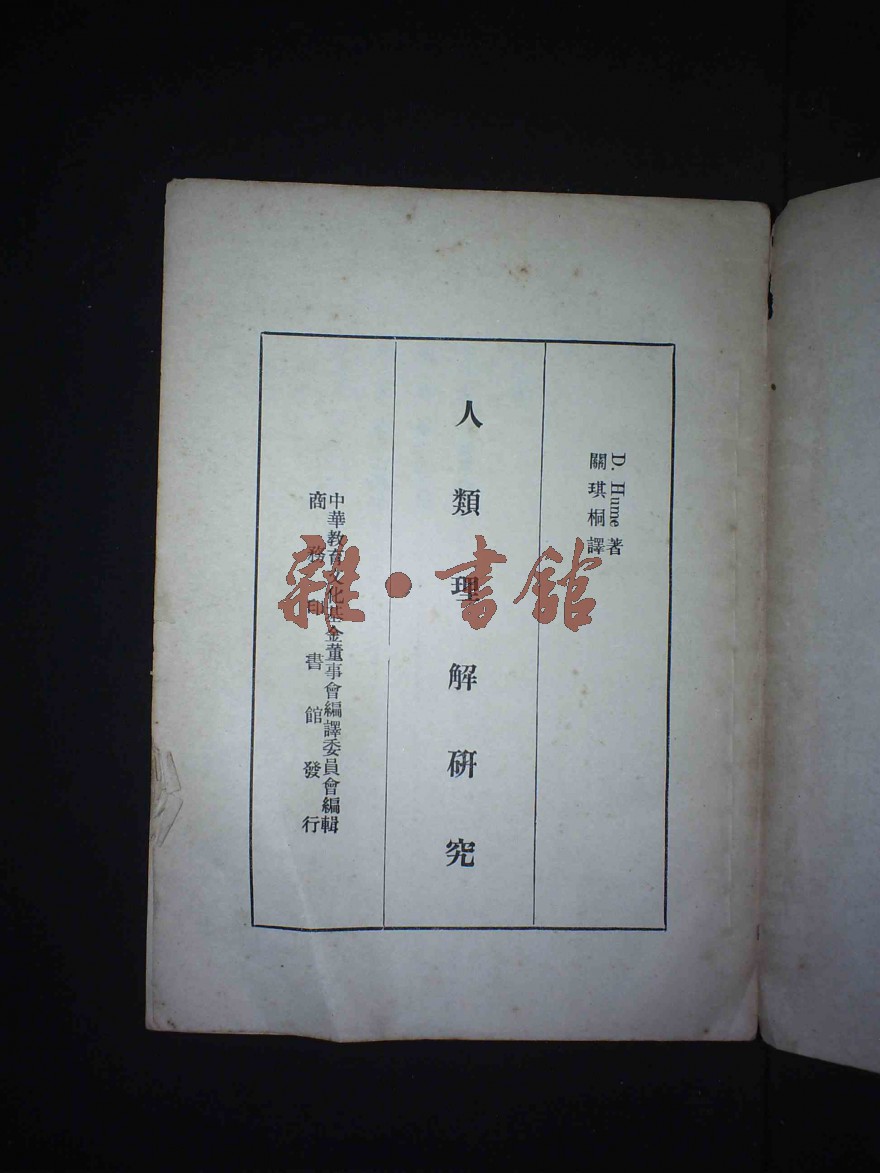 D. Hume 著
關琪桐譯
人類理解研究
中華教育文化基金董事會編譯委員會編輯
商務印書館發行
雜·書館